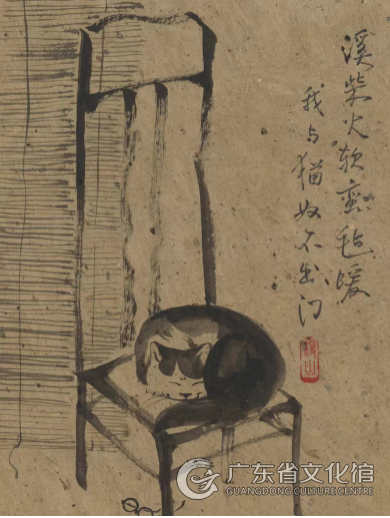 溪柴火软蛮毡暖
我与猫奴不出门
广东省文化馆
GUANGDONG CULTURE CENTRE